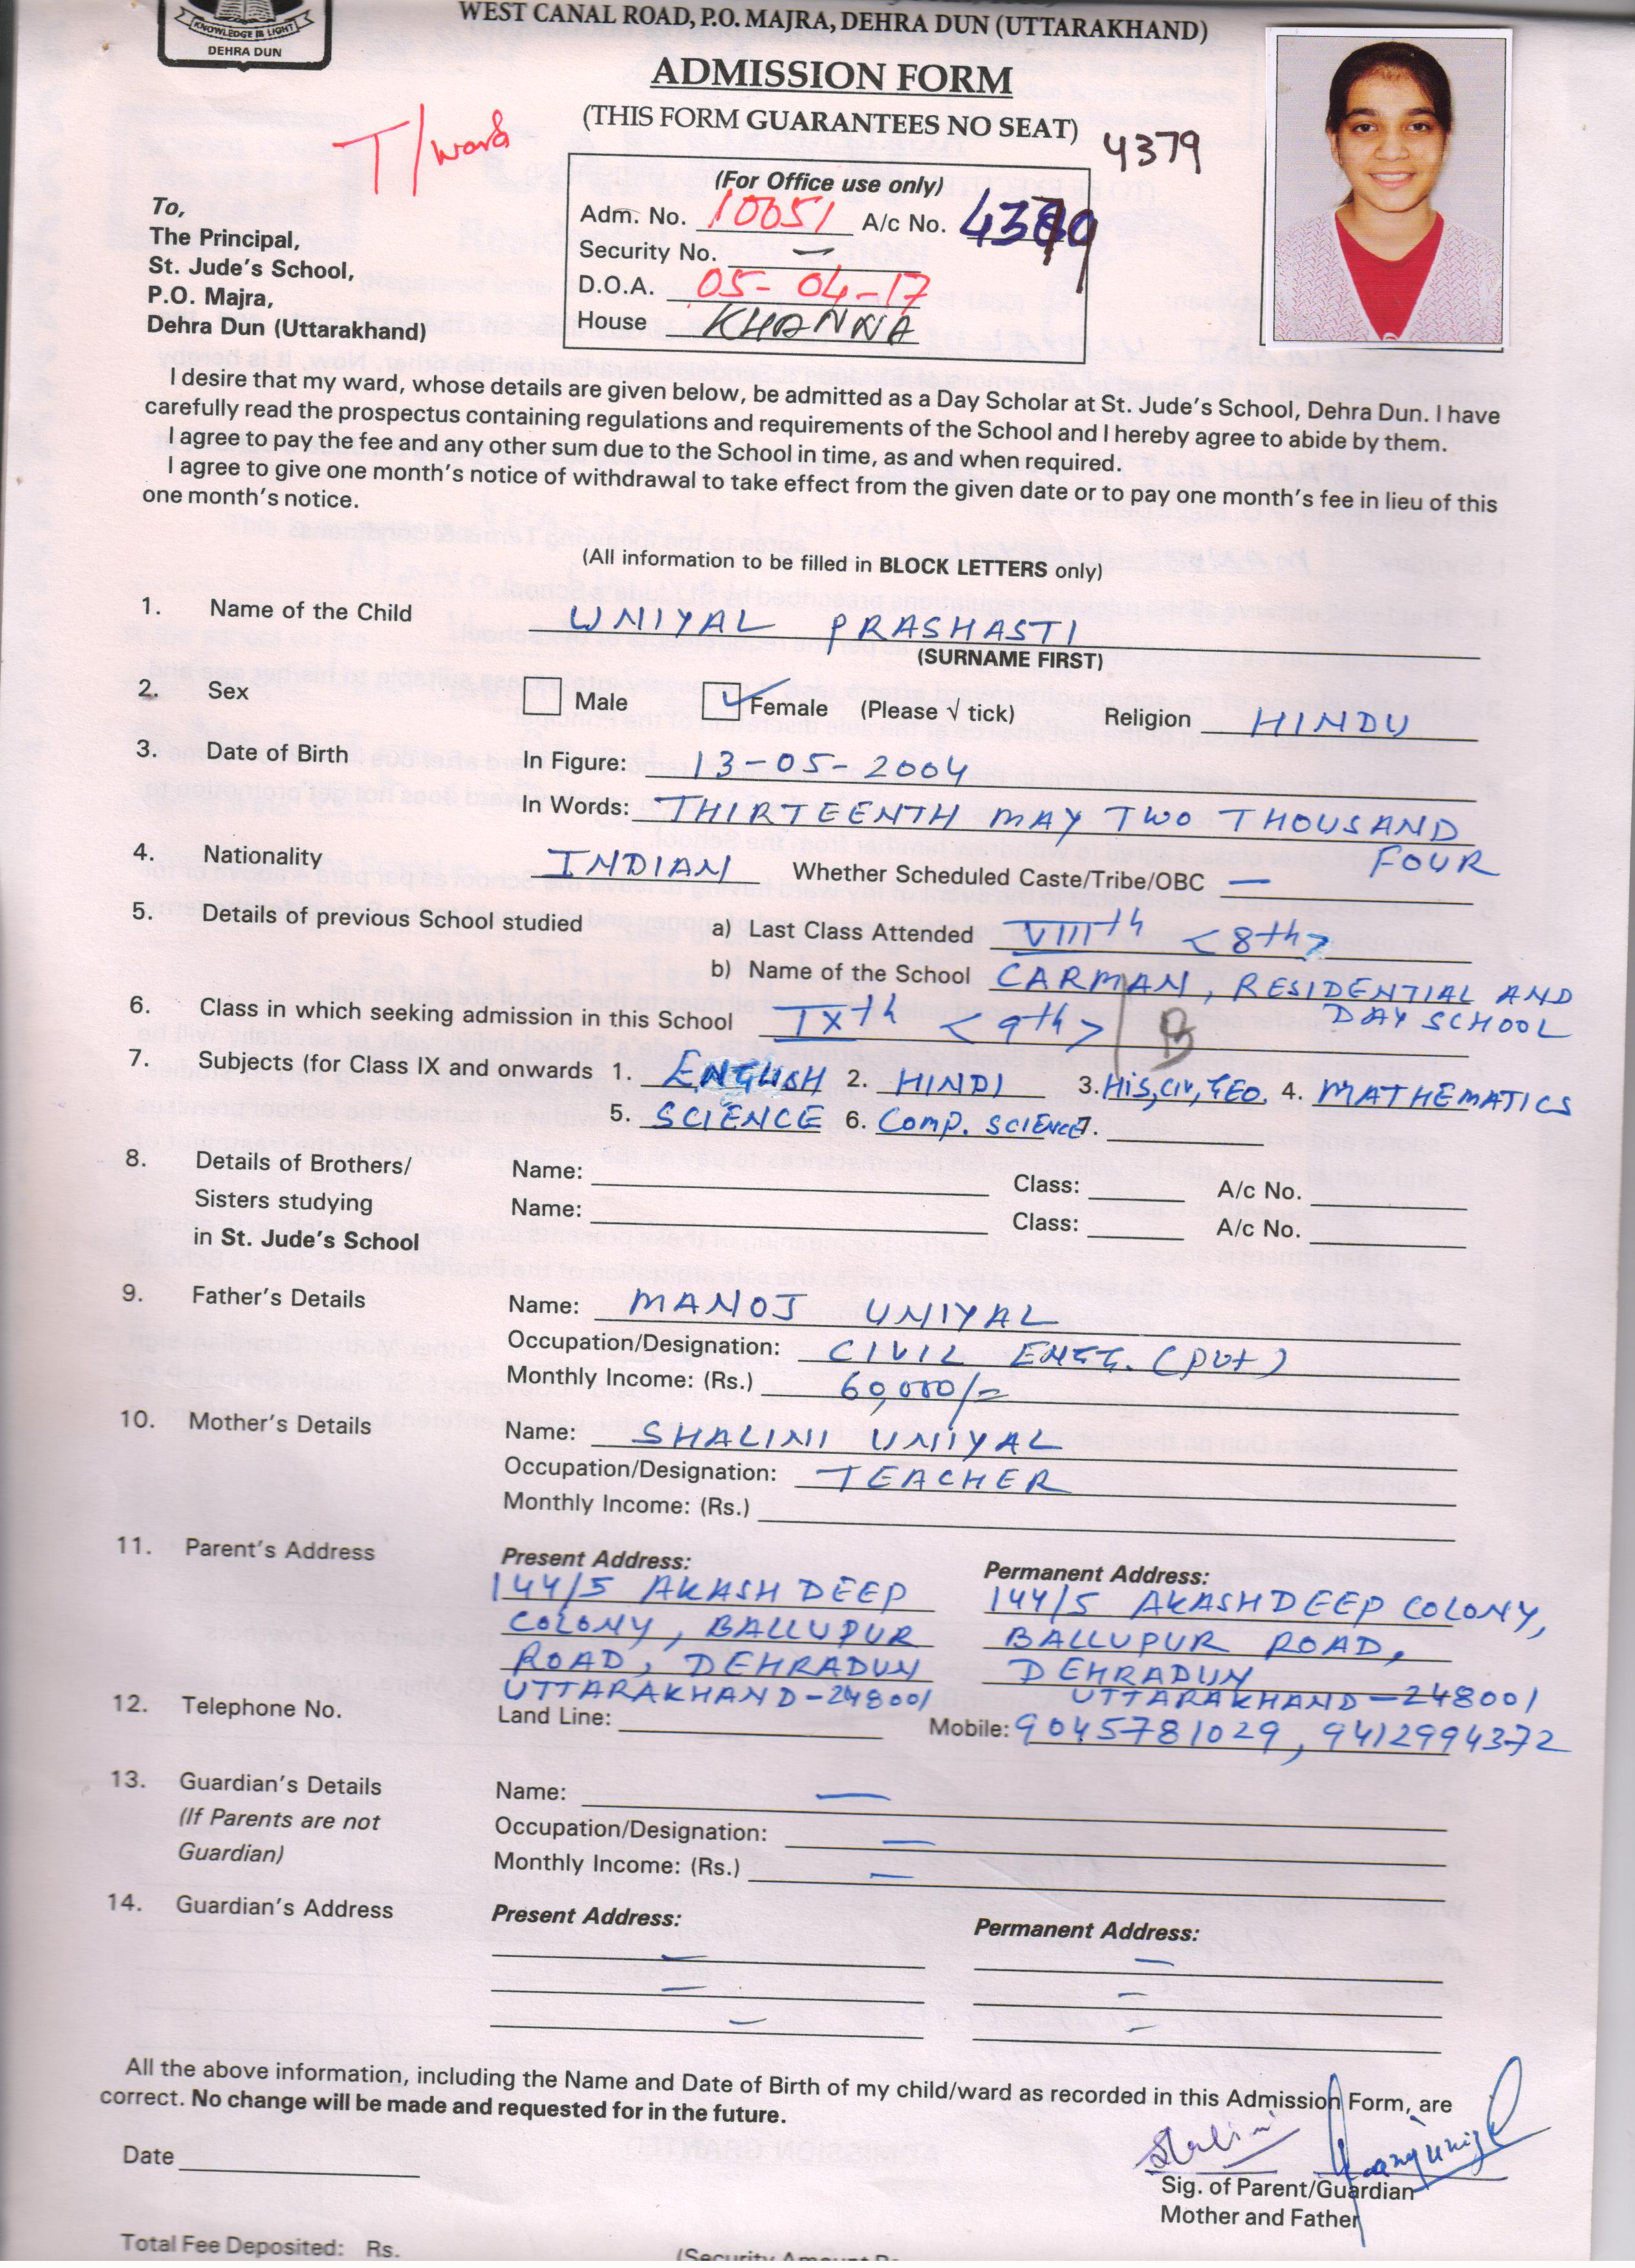 KNOWLEDGE IS LIGHT
DEHRA DUN
WEST CANAL ROAD, P.O. MAJRA, DEHRA DUN (UTTARAKHAND)
ADMISSION FORM
(THIS FORM GUARANTEES NO SEAT)
T/ward
4379
(For Office use only)
Adm. No. 10051 A/c No.
Security No. —
D.O.A. 05-04-17
House KHANNA
To,
The Principal,
St. Jude's School,
P.O. Majra,
Dehra Dun (Uttarakhand)
I desire that my ward, whose details are given below, be admitted as a Day Scholar at St. Jude's School, Dehra Dun. I have
carefully read the prospectus containing regulations and requirements of the School and I hereby agree to abide by them.
I agree to pay the fee and any other sum due to the School in time, as and when required.
I agree to give one month's notice of withdrawal to take effect from the given date or to pay one month's fee in lieu of this
one month's notice.
(All information to be filled in BLOCK LETTERS only)
1. Name of the Child UNIYAL PRASHASTI
(SURNAME FIRST)
2. Sex Male Female (Please √ tick) Religion HINDU
3. Date of Birth In Figure: 13-05-2004
In Words: THIRTEENTH MAY TWO THOUSAND
FOUR
4. Nationality INDIAN Whether Scheduled Caste/Tribe/OBC —
5. Details of previous School studied a) Last Class Attended VIIIth <8th>
b) Name of the School CARMAN, RESIDENTIAL AND
DAY SCHOOL
6. Class in which seeking admission in this School IXth <9th> / B
7. Subjects (for Class IX and onwards 1. ENGLISH 2. HINDI 3. His, Civ, GEO. 4. MATHEMATICS
5. SCIENCE 6. Comp. SCIENCE 7.
8. Details of Brothers/ Name: Class: A/c No.
Sisters studying Name: Class: A/c No.
in St. Jude's School
9. Father's Details Name: MANOJ UNIYAL
Occupation/Designation: CIVIL ENGG. (pvt)
Monthly Income: (Rs.) 60,000/=
10. Mother's Details Name: SHALINI UNIYAL
Occupation/Designation: TEACHER
Monthly Income: (Rs.)
11. Parent's Address Present Address: Permanent Address:
144/5 AKASH DEEP 144/5 AKASHDEEP COLONY,
COLONY, BALLUPUR BALLUPUR ROAD,
ROAD, DEHRADUN DEHRADUN
UTTARAKHAND-248001 UTTARAKHAND-248001
12. Telephone No. Land Line: Mobile: 9045781029, 9412994372
13. Guardian's Details Name: —
(If Parents are not Occupation/Designation: —
Guardian) Monthly Income: (Rs.) —
14. Guardian's Address Present Address: Permanent Address:
— —
— —
— —
All the above information, including the Name and Date of Birth of my child/ward as recorded in this Admission Form, are
correct. No change will be made and requested for in the future.
Shalini
Date
Sig. of Parent/Guardian
Mother and Father
Total Fee Deposited: Rs.